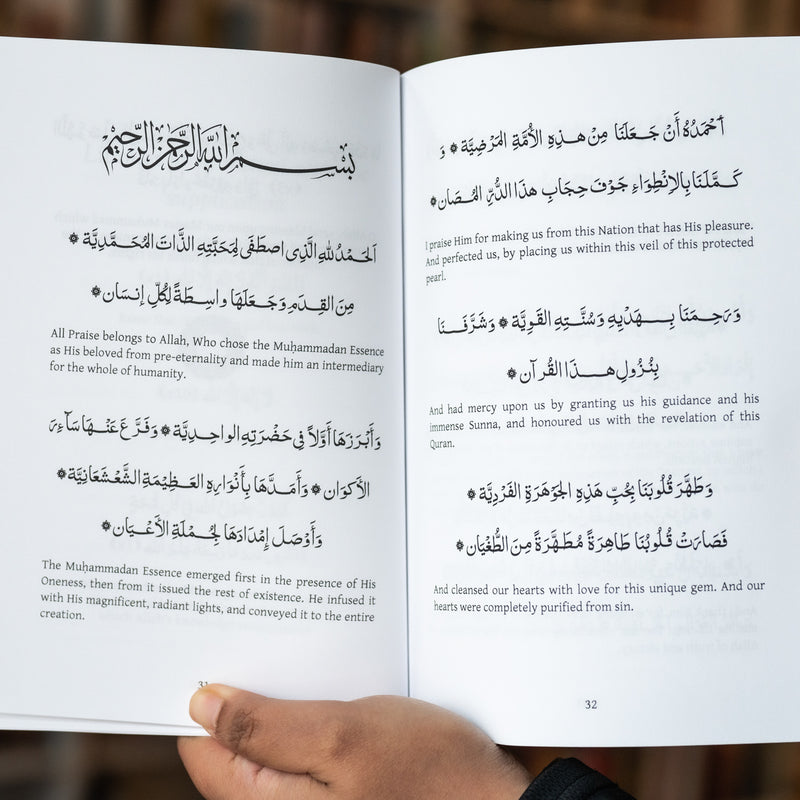 بسم الله الرحمن الرحيم
اَلحَمْدُ للهِ الَّذِى اصطَفَى لِمَحَبَّتِهِ الذَّاتَ المُحَمَّدِيَّة ۞
مِنَ القِدَمِ وَجَعَلَهَا واسِطَةً لِكُلِّ إنسَان ۞
All Praise belongs to Allah, Who chose the Muḥammadan Essence
as His beloved from pre-eternality and made him an intermediary
for the whole of humanity.
وَأَبْرَزَهَا أَوَّلاً فِى حَضْرَتِهِ الواحِدِيَّة ۞ وَفَرَّعَ عَنْهَا سَآءِرَ
الأَكوَان ۞ وَأَمَدَّهَا بِأَنْوَارِهِ العَظِيْمَةِ الشَّعْشَعَانِيَّة ۞
وَأَوْصَلَ إِمْدَادَهَا لِجُمْلَةِ الأَعْيَان ۞
The Muḥammadan Essence emerged first in the presence of His
Oneness, then from it issued the rest of existence. He infused it
with His magnificent, radiant lights, and conveyed it to the entire
creation.
31
أَحْمَدُهُ أَنْ جَعَلَنَا مِنْ هٰذِهِ الأُمَّةِ المَرْضِيَّة ۞ وَ
كَمَّلَنَا بِالإِنْطِوَاءِ جَوْفَ حِجَابِ هٰذَا الدُّرِّ المُصَان ۞
I praise Him for making us from this Nation that has His pleasure.
And perfected us, by placing us within this veil of this protected
pearl.
وَرَحِمَنَا بِهَدْيِهِ وَسُنَّتِهِ القَوِيَّة ۞ وَشَرَّفَنَا
بِنُزُولِ هٰذَا القُرآن ۞
And had mercy upon us by granting us his guidance and his
immense Sunna, and honoured us with the revelation of this
Quran.
وَطَهَّرَ قُلُوبَنَا بِحُبِّ هَذِهِ الجَوْهَرَةِ الفَرْدِيَّة ۞
فَصَارَتْ قُلُوبُنَا طَاهِرَةً مُطَهَّرَةً مِنَ الطُّغْيَان ۞
And cleansed our hearts with love for this unique gem. And our
hearts were completely purified from sin.
32